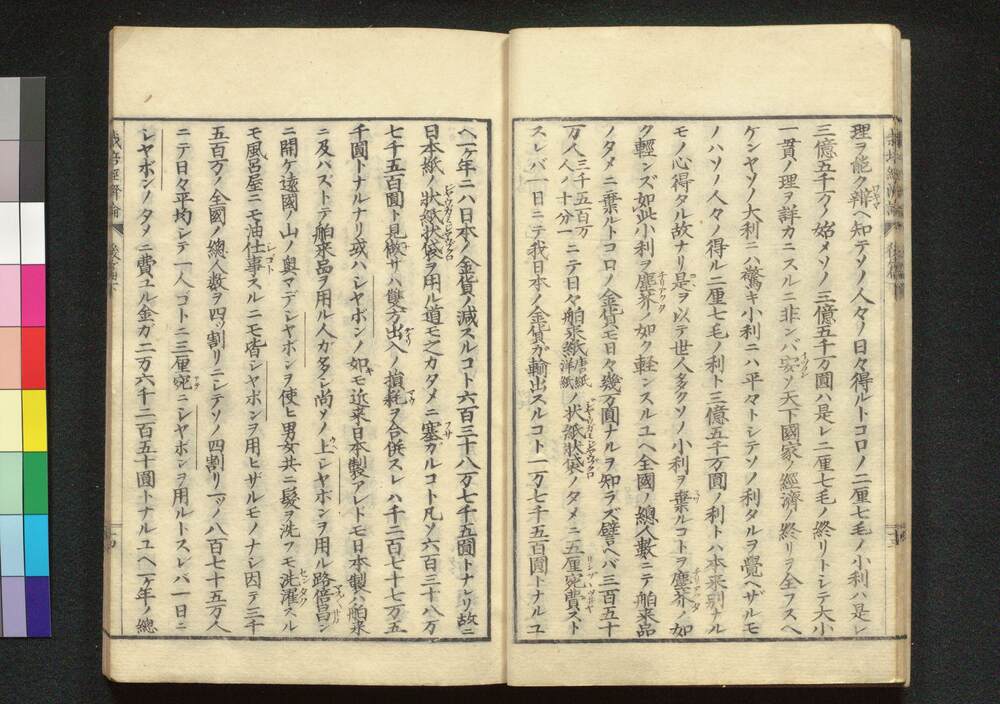 理ヲ能ク辨ヘ知テソノ人々ノ日々得ルトコロノ二厘七毛ノ小利ハ是レ
三億五千万ノ始メソノ三億五千万圓ハ是レ二厘七毛ノ終リトシテ大小
一貫ノ理ヲ詳カニスルニ非ンバ安ソ天下國家ノ經濟ノ終リヲ全フスヘ
ケンヤソノ大利ニハ驚キ小利ニハ平々トシテソノ利タルヲ覺ヘザルモ
ノハソノ人々ノ得ル二厘七毛ノ利ト三億五千万圓ノ利トハ本来別ナル
モノ心得タル故ナリ是ヲ以テ世人多クソノ小利ヲ棄ルコトヲ塵芥ノ如
ク輕ンズ如此小利ヲ塵芥ノ如ク軽ンスルユヘ全國ノ總人數ニテ舶来品
ノタメニ棄ルトコロノ金貨モ日々幾万圓ナルヲ知ラズ譬ヘバ三百五十
万人三千五百万人ノ十分一ニテ日々舶来紙唐紙洋紙ノ状紙状袋ノタメニ五厘宛費スト
スレバ一日ニテ我日本ノ金貨ガ輸出スルコト一万七千五百圓トナルユ
栽培經濟論 後篇下 十三
ヘ一ケ年ニハ日本ノ金貨ノ減スルコト六百三十八万七千五圓トナレリ故ニ
日本紙ノ状紙状袋ヲ用ル道モ之カタメニ塞ガルコト凡ソ六百三十八万
七千五百圓ト見做サハ雙方出入ノ損耗ヲ合併スレハ千二百七十七万五
千圓トナルナリ或ハシヤボンノ如モ近来日本製アレトモ日本製ハ舶来
ニ及ハストテ舶来品ヲ用ル人ガ多シ尚ソノ上シヤボンヲ用ル路倍昌ン
ニ開ケ遠國ノ山ノ奥マデシヤボンヲ使ヒ男女共ニ髪ヲ洗フモ洗濯スル
モ風呂屋ニモ油仕事スルニモ皆シヤボンヲ用ヒザルモノナシ因テ三千
五百万ノ全國ノ總人数ヲ四ッ割リニシテソノ四割リ一ッノ八百七十五万人
ニテ日々平均シテ一人ゴトニ三厘宛ニシヤボンヲ用ルトスレバ一日ニ
シヤボンノタメニ費ユル金ガ二万六千二百五十圓トナルユヘ一ケ年ノ總
栽培經濟論 後篇下 十四